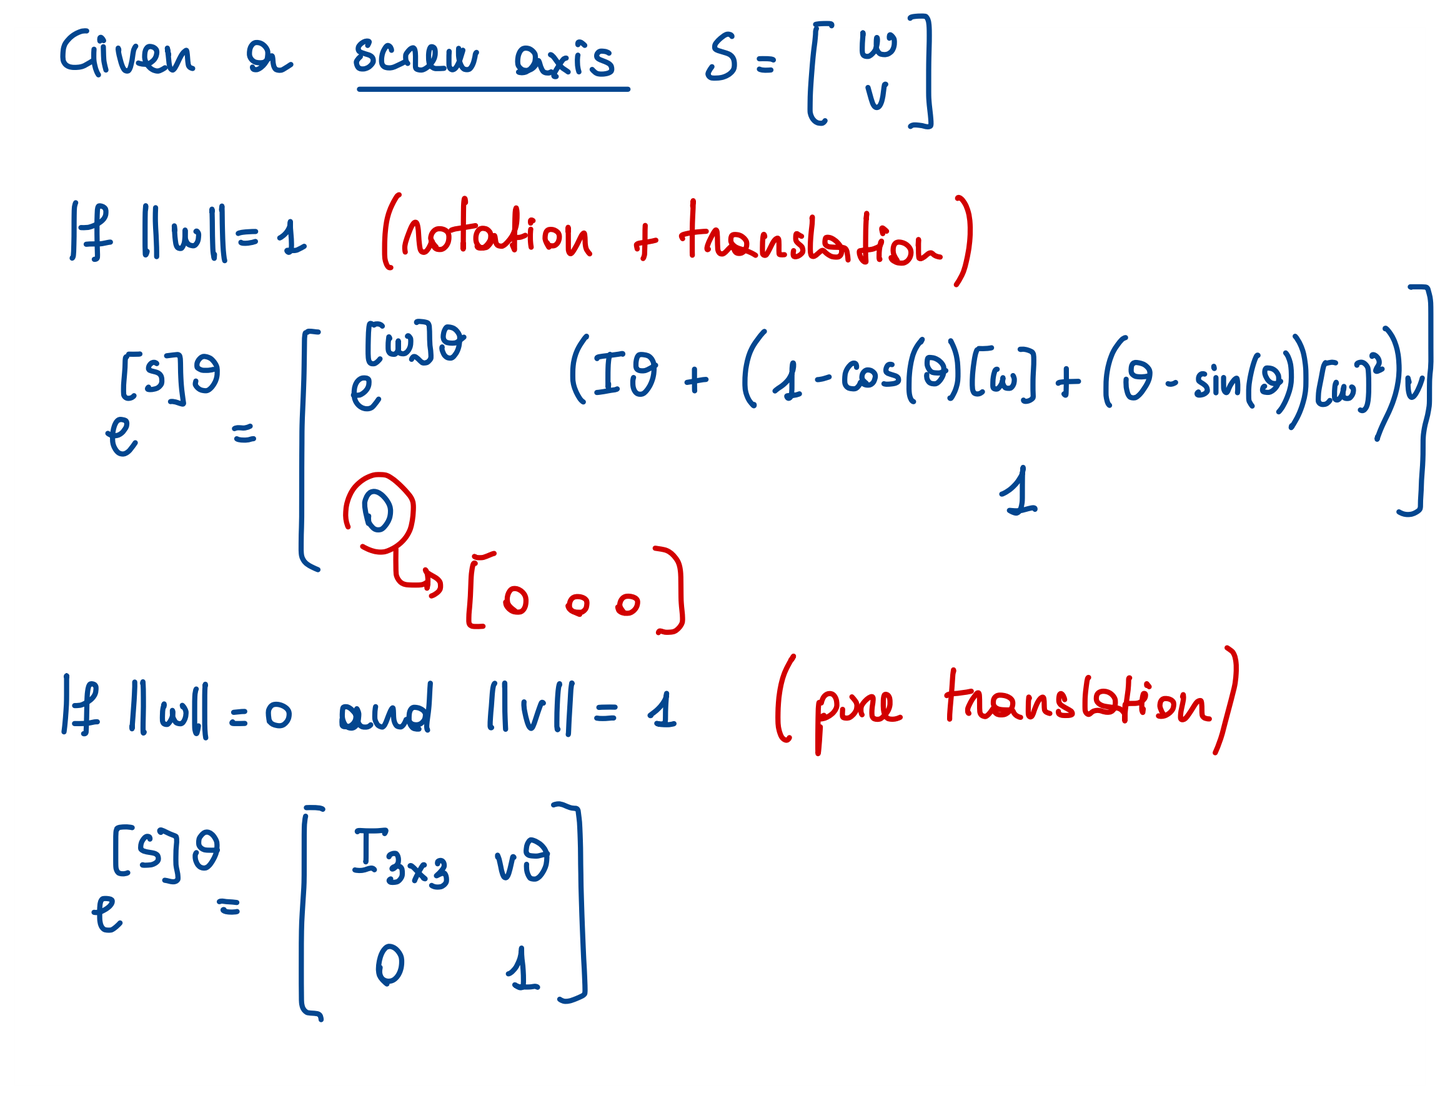 Given a screw axis S = [ w v ]
If ||w|| = 1 (rotation + translation)
e^{[S]θ} = [ e^{[w]θ} (Iθ + (1 - cos(θ)[w] + (θ - sin(θ))[w]²)v
0 1 ]
→ [ 0 0 0 ]
If ||w|| = 0 and ||v|| = 1 (pure translation)
e^{[S]θ} = [ I_{3×3} vθ
0 1 ]